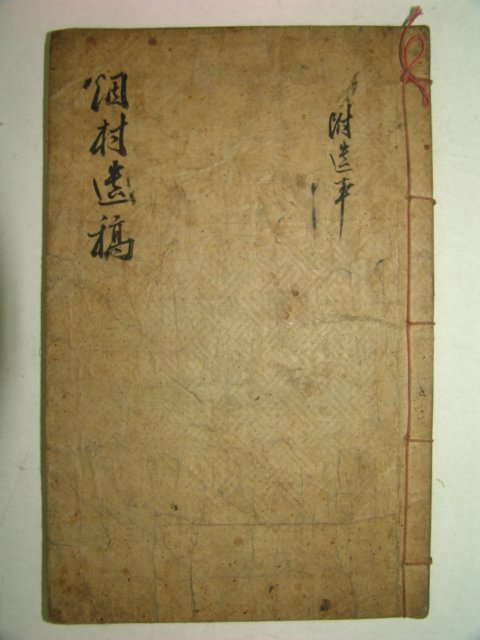 附遺事
烟村遺稿